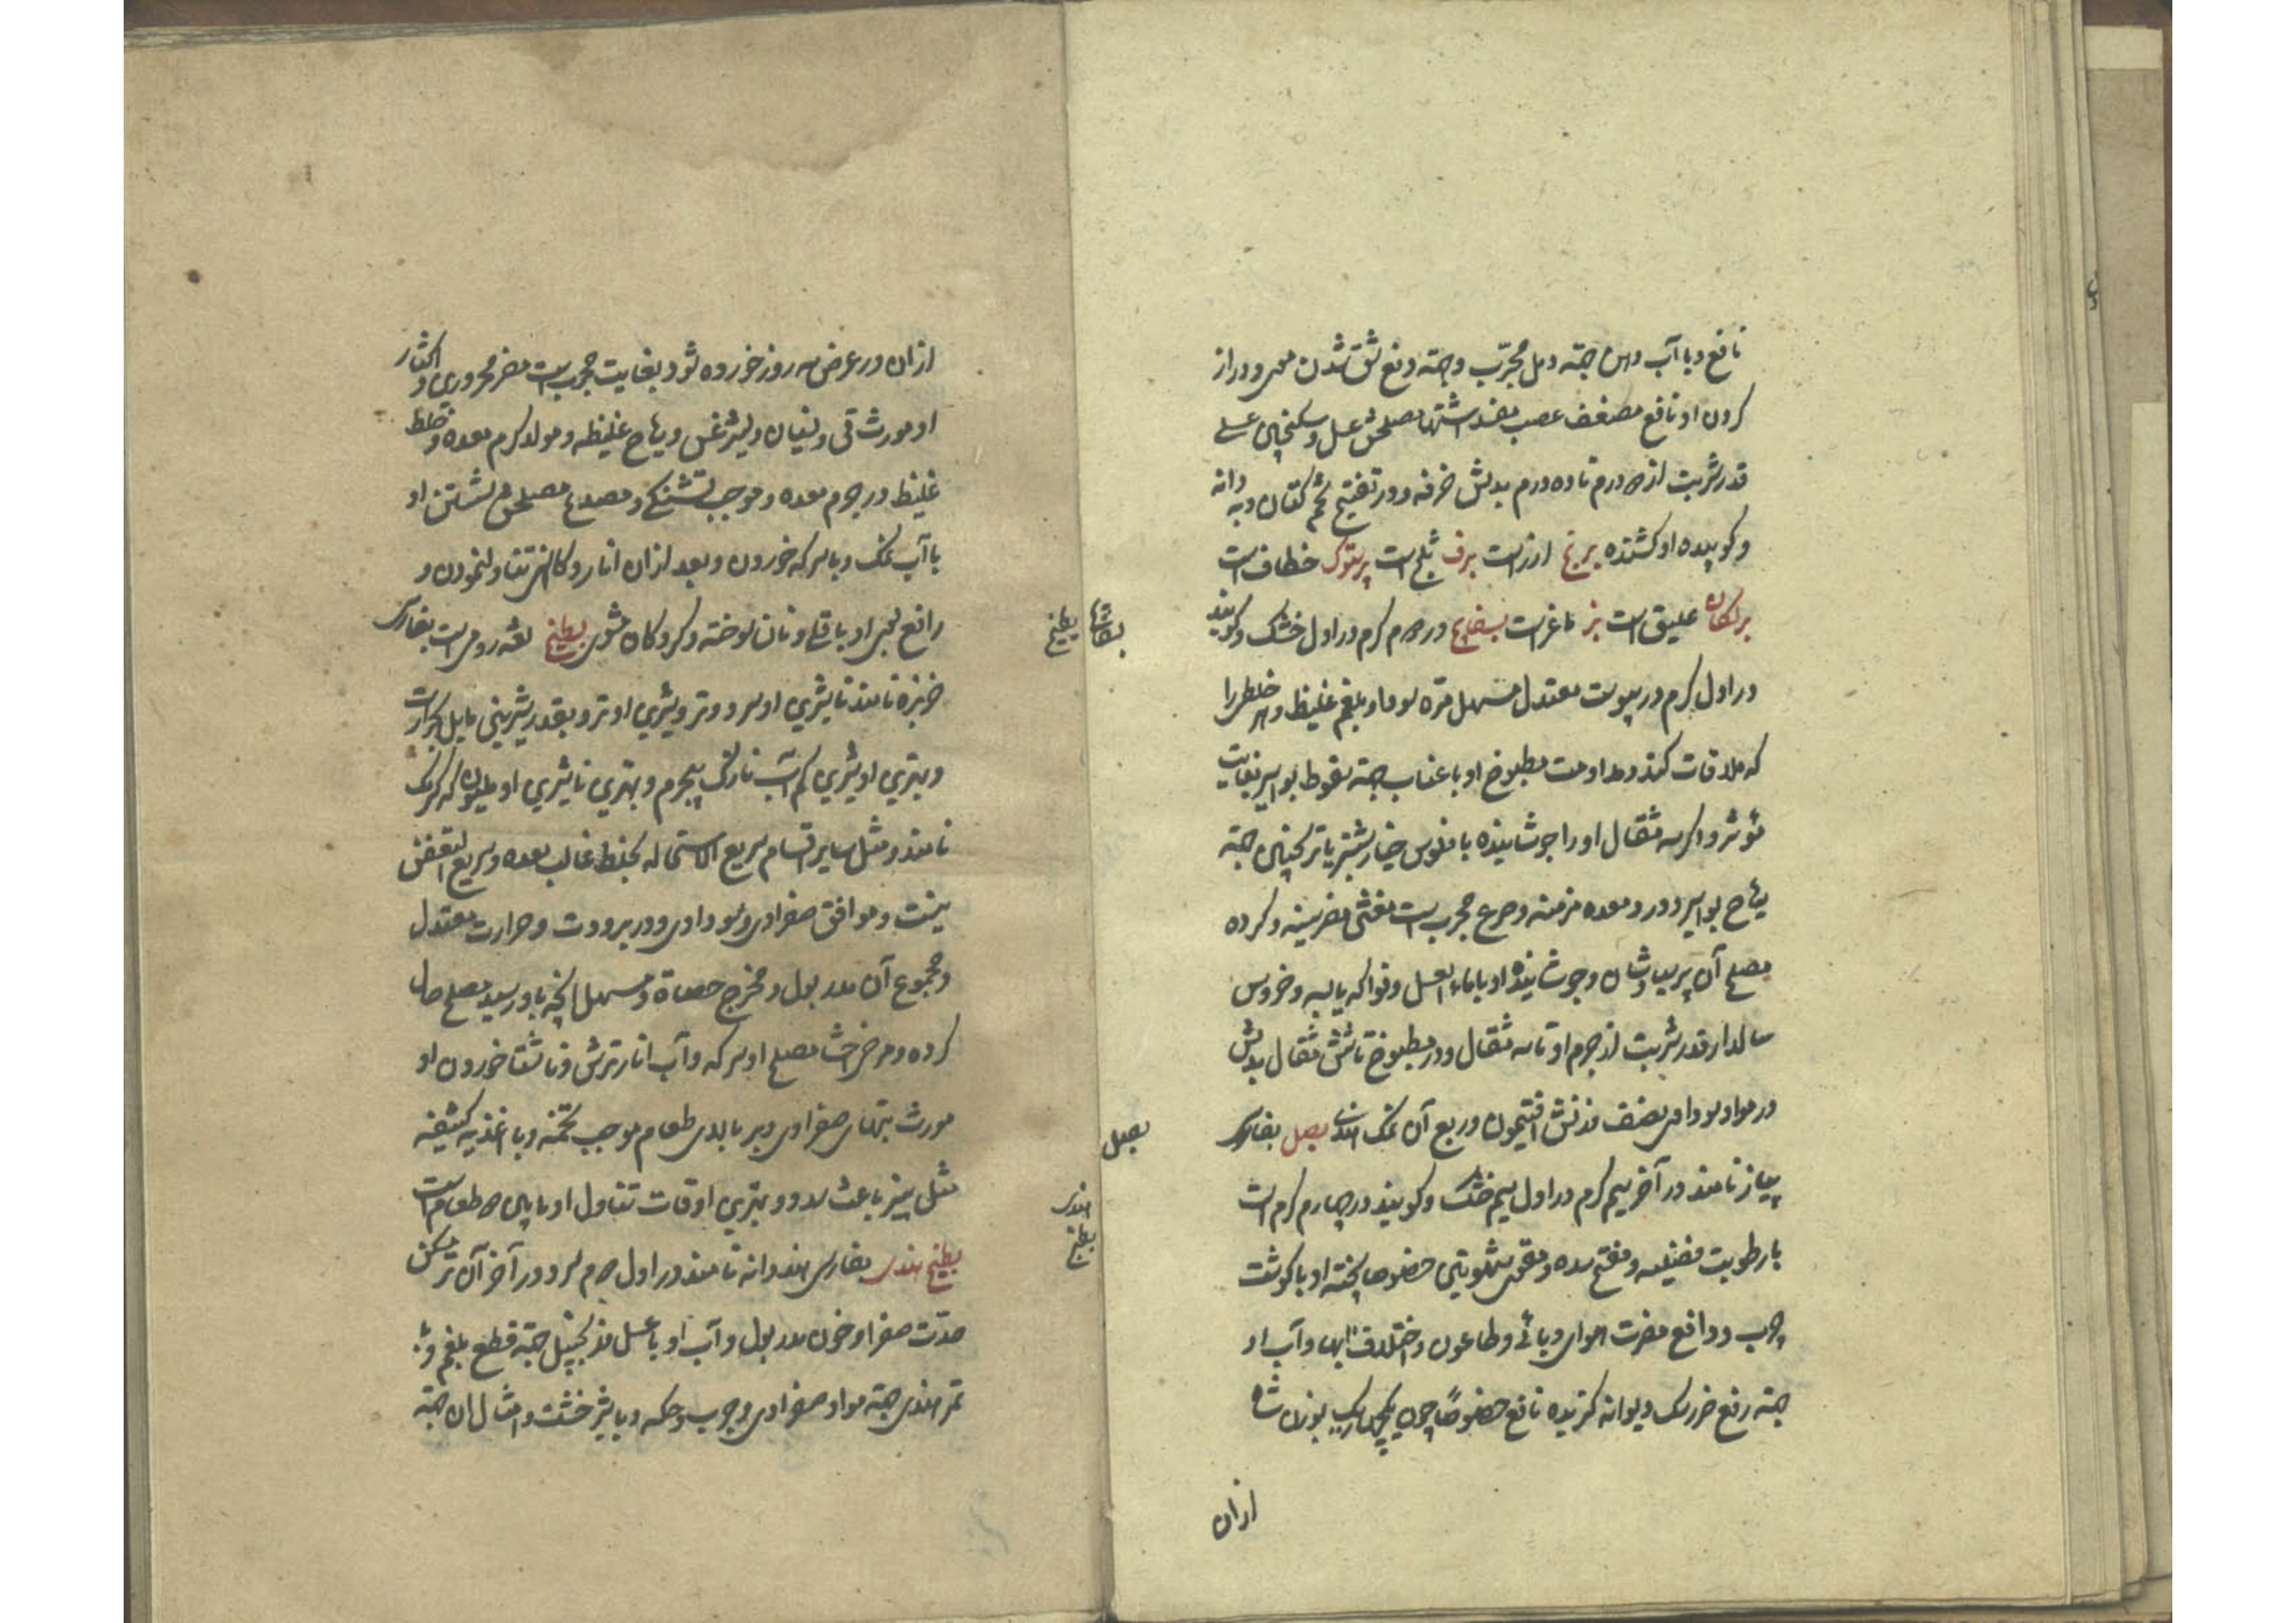 نافع و با آب دهن جهته دمل مجرّب و جهته دفع شق شدن موی و دراز
کردن او نافع مضعف عصب مفسد اشتها مصلحش عسل و سکنجبین عسلی
قدر شربت از ده درم بدلش خرفه و در تفتیح تخم کتان و به دانه
و کوبیده او کشنده برنج ارزاست برف ثلج است پرستوک خطاف است
برلکان علیق است بز ماعز است بسفایج در دوم کرم در اول خشک و کویند
در اول کرم در یبوست معتدل مسهل مرّه سودا و بلغم غلیظ و هر خلطی را
که ملاقات کند و مداومت مطبوخ او با عناب جهته سقوط بواسیر بغایت
مؤثر و اکر سه مثقال او را جوشانیده با فلوس خیارشنبر یا ترنجبین جهته
ریاح بواسیر و درد معده مزمنه و صرع مجرب است مغثی مضر سینه و کرده
مصلح آن پرسیاوشان و جوشانیده او با ماء العسل و فواکه یابسه و خروس
سالدار قدر شربت از جرم او تا سه مثقال و در مطبوخ تا شش مثقال بدلش
در مواد سوداوی نصف وزنش افتیمون و ربع آن نمک هندی بصل بفارسی
پیاز نامند در آخر سیم کرم در اول سیم خشک و کویند در چهارم کرم است
با رطوبت فضلیه و مفتح سده و مقوی شهوتین خصوصا پخته او با کوشت
چرب و دافع مضرت هوای وبائی و طاعون و اختلاف آبها و آب او
جهته رفع ضرر سک دیوانه کزنده نافع خصوصًا چون یکچهاریک بوزن شاه
ازان
بسفایج
بصل
ازان در عرض سه روز خورده شود بغایت مجرب است مضر محروری و اکثار
او مورث قی و نسیان و لیثرغس و ریاح غلیظه و مولد کرم معده و خلط
غلیظ در جرم معده و موجب تشنکی و مصدع مصلحش شستن او
با آب نمک و با سرکه خوردن و بعد ازان انار و کاسنی تناول نمودن و
رافع بوی او باقلی و نان سوخته و کردکان مشوی بطیخ لغه رومی است بفارسی
خربزه نامند نارس او سرد و تر و شیرین او تر و بقدر شیرینی مایل بحرارت
و بهترین او شیرین کم آب نازک بیجرم و بهترین ناشیرین او ملیون که کرمک
نامند و مثل سایر اقسام سریع الاستحاله بخلط غالب معده و سریع التعفن
نیست و موافق صفراوی و سوداوی و در برودت و حرارت معتدل
و مجموع آن مدر بول و مخرج حصاة و مسهل آنچه باو رسید مصلح حال
کرده و مرخی احشا مصلح او سرکه و آب انار ترش و ناشتا خوردن او
مورث تبهای صفراوی و بر بالای طعام موجب تخمه و با اغذیه کثیفه
مثل پنیر باعث سدد و بهترین اوقات تناول او مابین دو طعام است
بطیخ هندی بفارسی هندوانه نامند در اول دوم سرد و در آخر آن تر مسکن
حدّت صفرا و خون مدر بول و آب او با عسل و زنجبیل جهته قطع بلغم و با
تمر هندی جهته مواد صفراوی و جرب و حکه و با شیر خشت و امثال آن جهته
بطیخ
بطیخ هندی